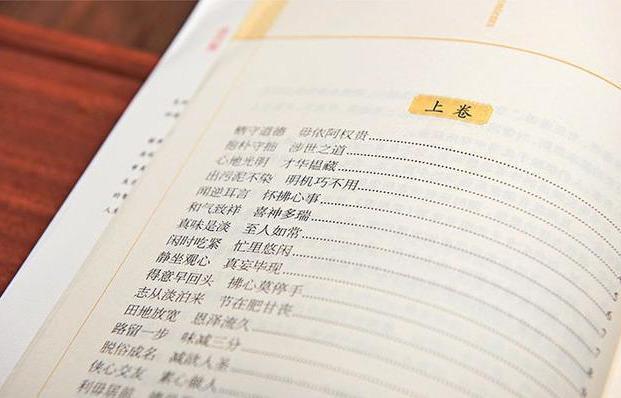 上卷
栖守道德 毋依阿权贵
抱朴守拙 涉世之道
心地光明 才华韫藏
出污泥不染 明机巧不用
闻逆耳言 怀拂心事
和气致祥 喜神多瑞
真味是淡 至人如常
闲时吃紧 忙里悠闲
静坐观心 真妄毕现
得意早回头 拂心莫停手
志从淡泊来 节在肥甘丧
田地放宽 恩泽流久
路留一步 味减三分
脱俗成名 减欲入圣
侠心交友 素心做人
利毋居前